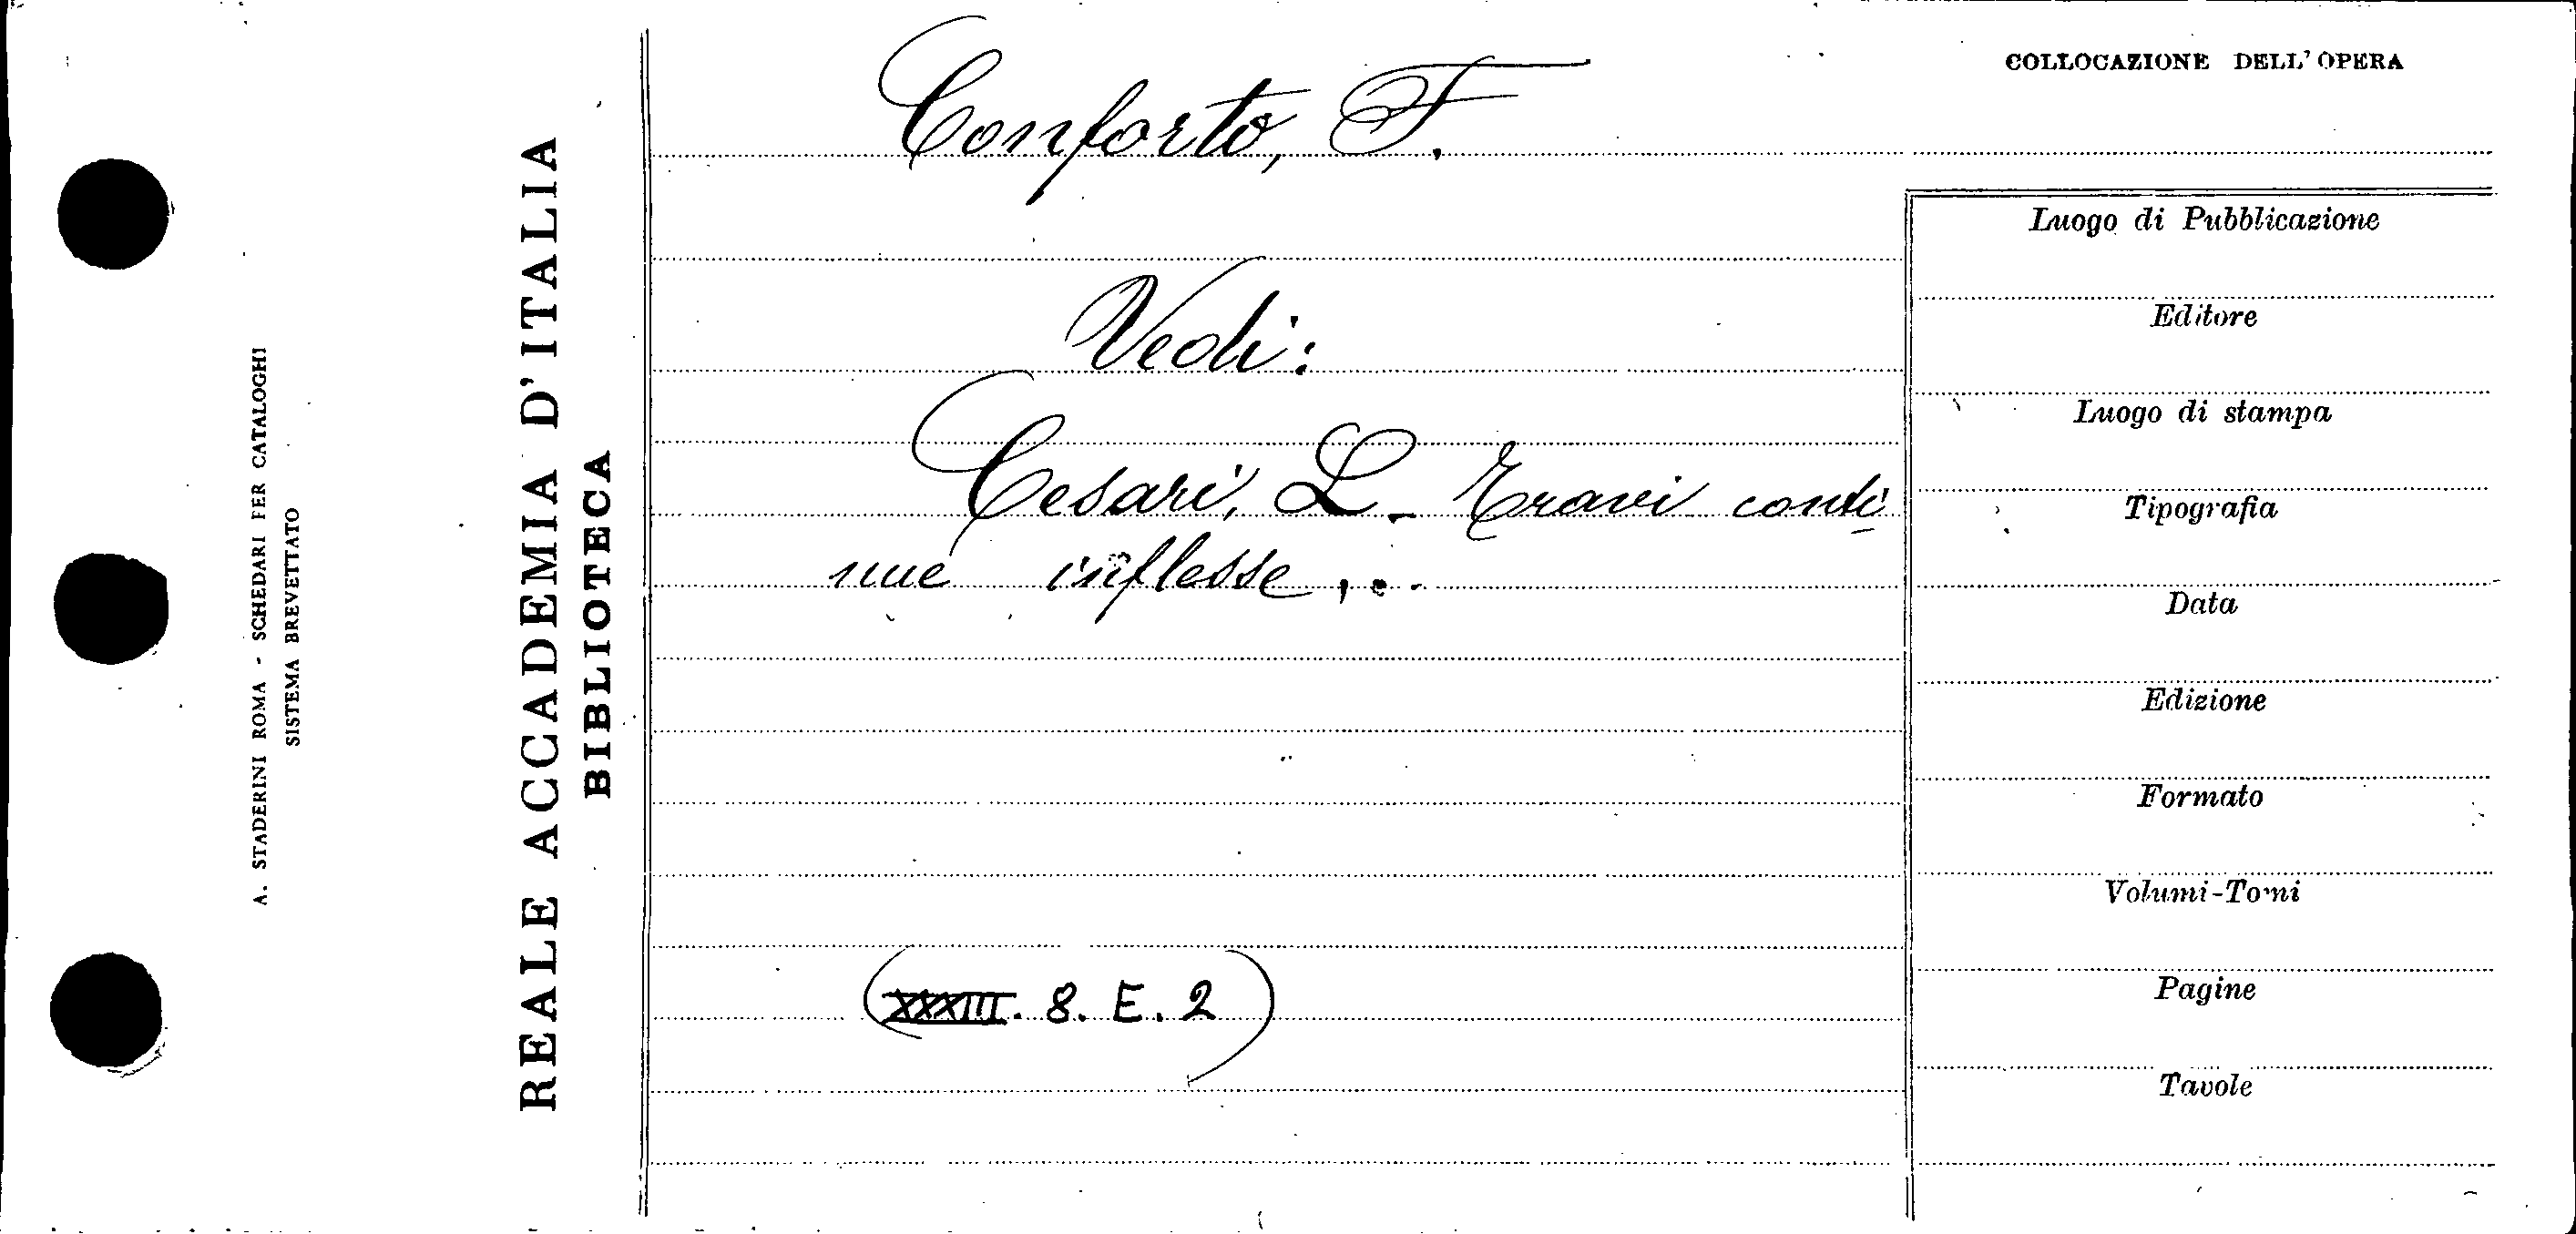 A. STADERINI ROMA - SCHEDARI PER CATALOGHI
SISTEMA BREVETTATO
REALE ACCADEMIA D'ITALIA
BIBLIOTECA
Conforto, F.
Vedi:
Cesari, L. - Travi conti
nue inflesse ...
(XXXIII. 8. E. 2)
COLLOCAZIONE DELL'OPERA
Luogo di Pubblicazione
Editore
Luogo di stampa
Tipografia
Data
Edizione
Formato
Volumi-Tomi
Pagine
Tavole